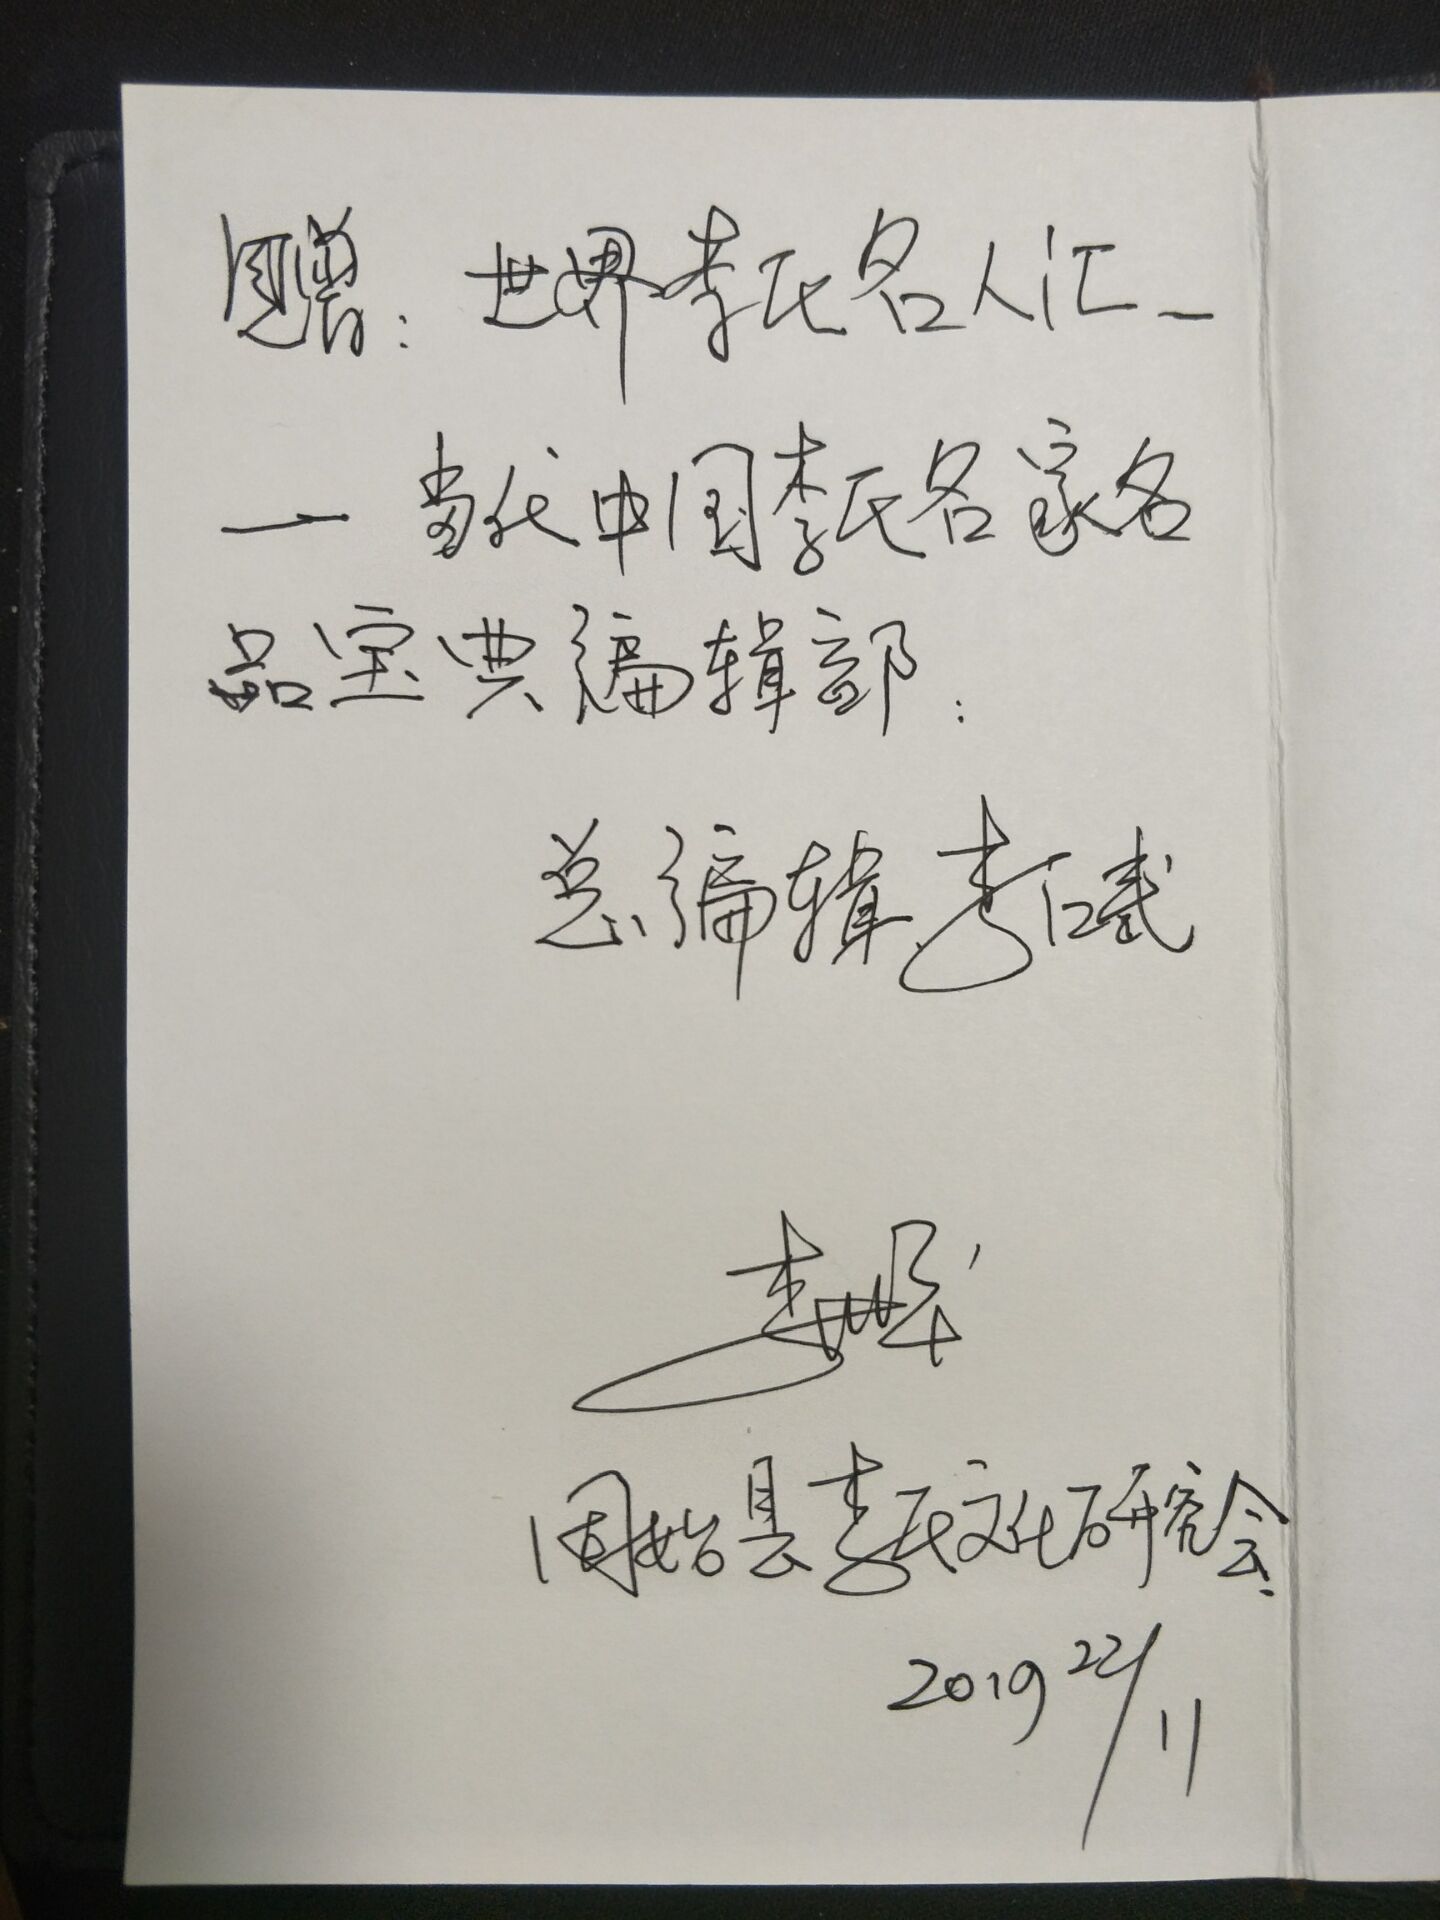 赠：世界李氏名人汇—
—当代中国李氏名家名
品宝典编辑部：
总编辑李石斌
李
固始县李氏文化研究会
2019 22/11